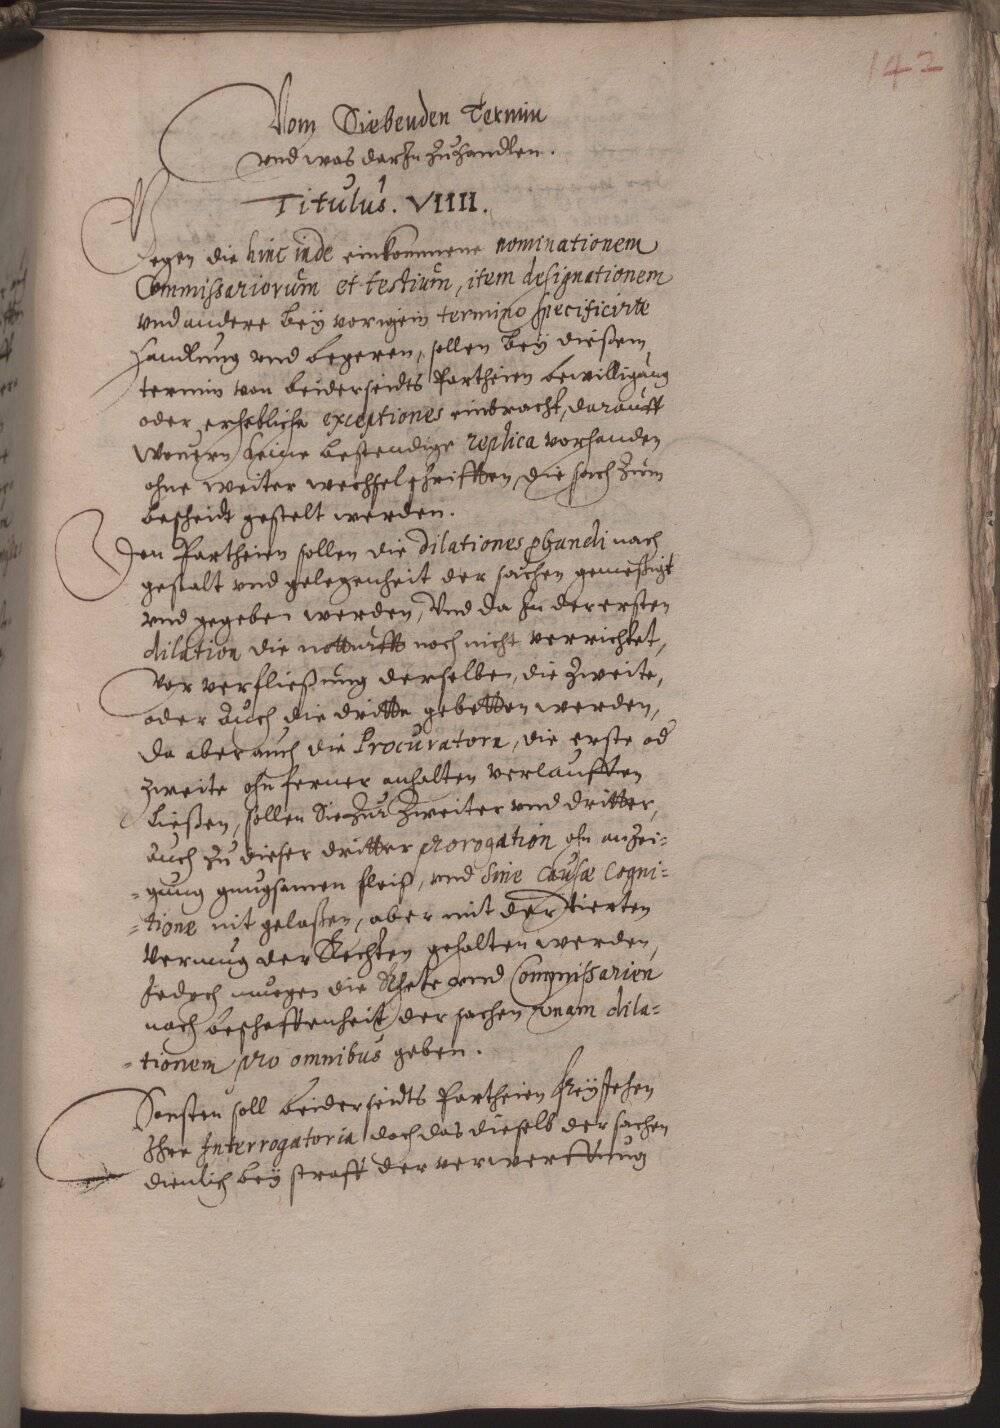 142
Vom Siebenden Termin
vnd was darIn Zuhandlen.
Titulus. VIIII.
Gegen die hinc inde einkommene nominationem
Commissariorum et testium, item designationem
vnd andere bey vorigem termino specificirte
handlung vnd begeren, sollen bey dießem
termin von beiderseidts Partheien bewilligung
oder erhebliche exceptiones einbracht, darauff
keine bestendige replica vorhanden
ohne weiter wechselschrifften, die sach Zum
bescheidt gestelt werden.
Den Partheien sollen die dilationes pbandi nach
gestalt vnd gelegenheit der sachen gemeßigt
vnd gegeben werden, Vnd da In der ersten
dilation die notturfft noch nicht verrichtet,
Vor verfließung derselben, die Zweite,
oder auch die dritte gebetten werden,
Da aber auch die Procuratorn, die erste od
Zweite ohn ferner anhalten verlauffen
ließen, sollen Sie Zur Zweiter vnd dritter,
auch Zu dieser dritter prorogation ohn anZei=
=gung gnugsamen fleiß, vnd sine causæ cogni=
=tione nit gelaßen, aber mit der vierten
Vermug der Rechten gehalten werden,
Jedoch mugen die Rhete vnd Commissarien
nach beschaffenheit der sachen vnam dila=
=tionem pro omnibus geben.
Sonsten soll beiderseidts Partheien freystehen
Ihre Interrogatoria doch das dieselb der sachen
dienlich bey straff der verwerffung